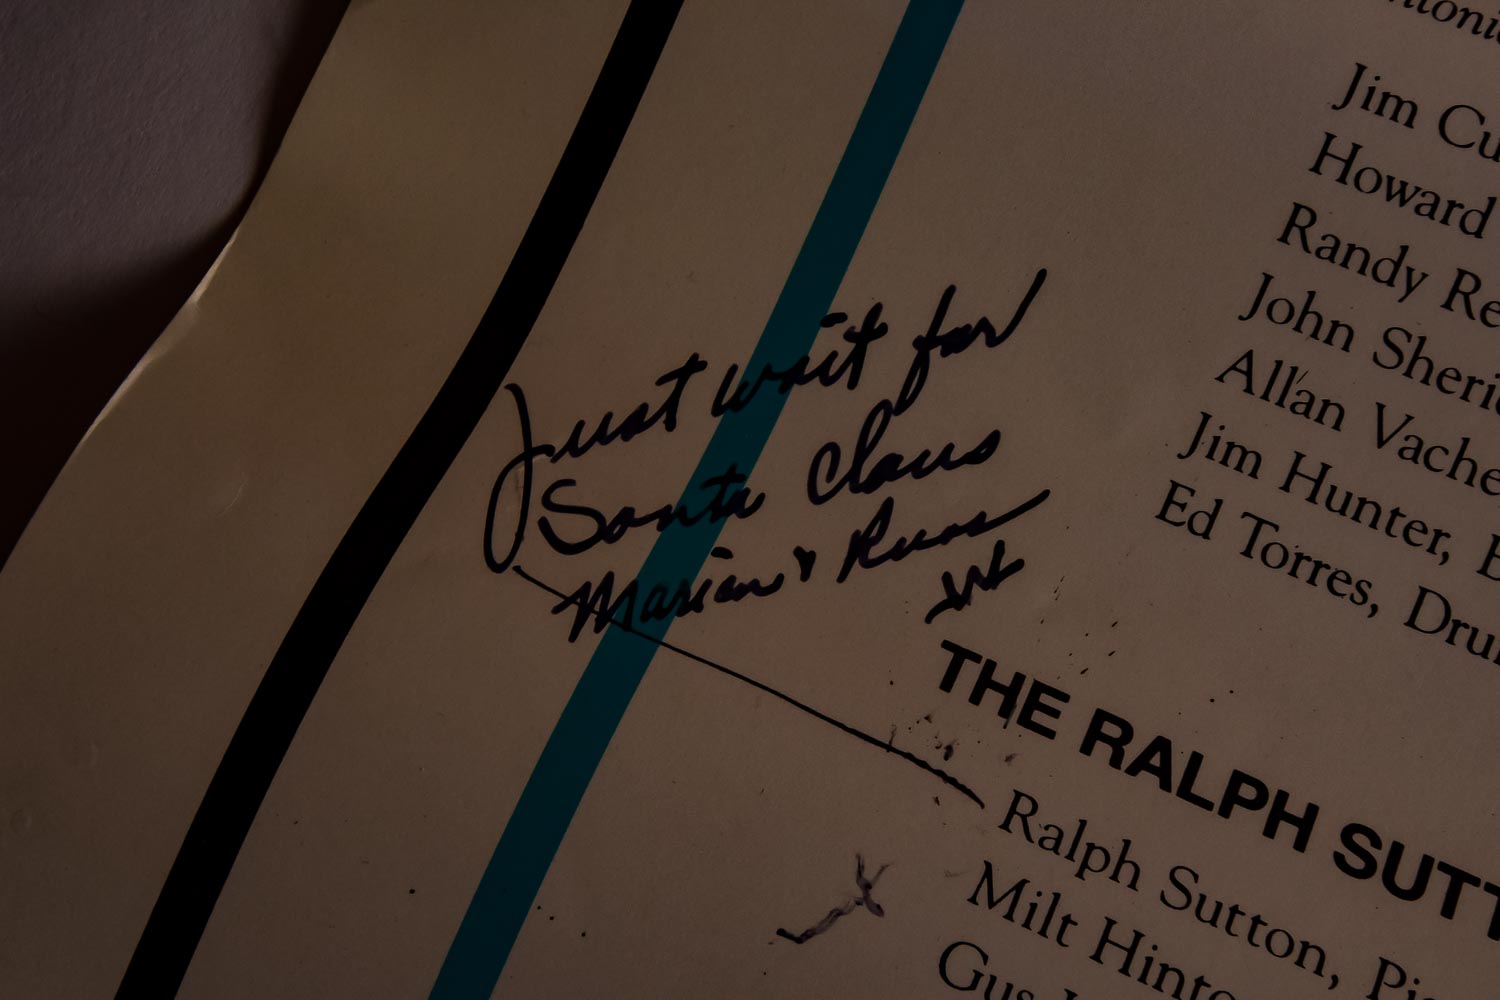 Jim Cu
Howard
Randy Re
John Sheri
Allan Vache
Jim Hunter,
Ed Torres, Dru
Just wait for
Santa Claus
Marian & Russ
THE RALPH SUTT
Ralph Sutton, Pi
Milt Hinto
Gus